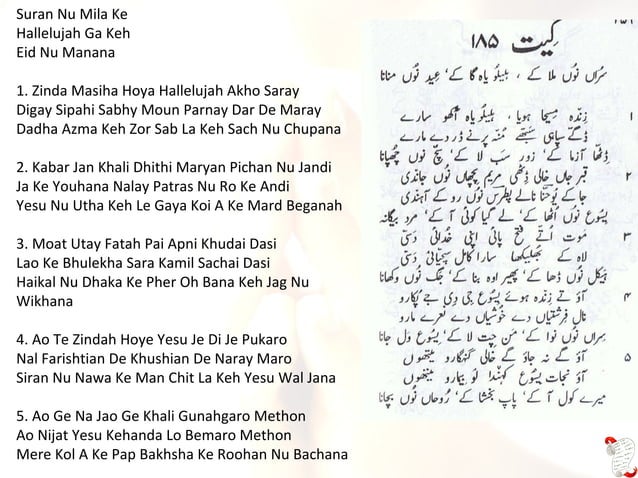 Suran Nu Mila Ke
Hallelujah Ga Keh
Eid Nu Manana
1. Zinda Masiha Hoya Hallelujah Akho Saray
Digay Sipahi Sabhy Moun Parnay Dar De Maray
Dadha Azma Keh Zor Sab La Keh Sach Nu Chupana
2. Kabar Jan Khali Dhithi Maryan Pichan Nu Jandi
Ja Ke Youhana Nalay Patras Nu Ro Ke Andi
Yesu Nu Utha Keh Le Gaya Koi A Ke Mard Beganah
3. Moat Utay Fatah Pai Apni Khudai Dasi
Lao Ke Bhulekha Sara Kamil Sachai Dasi
Haikal Nu Dhaka Ke Pher Oh Bana Keh Jag Nu
Wikhana
4. Ao Te Zindah Hoye Yesu Je Di Je Pukaro
Nal Farishtian De Khushian De Naray Maro
Siran Nu Nawa Ke Man Chit La Keh Yesu Wal Jana
5. Ao Ge Na Jao Ge Khali Gunahgaro Methon
Ao Nijat Yesu Kehanda Lo Bemaro Methon
Mere Kol A Ke Pap Bakhsha Ke Roohan Nu Bachana
گیت ۱۸۵
سُراں نُوں ملا کے ، ہیلیلُویاہ گا کے، عید نُوں منانا
۱ زندہ مسیحا ہویا ، ہیلیلُویاہ آکھو سارے
ڈِگے سپاہی سبھے مُنہ پرنے ڈر دے مارے
ڈِٹھا آزما کے، زور سب لا کے، سچ نوں چُھپانا
۲ قبر جاں خالی ڈِٹھی مریم پچھاں نُوں جاندی
جا کے یُوحنا نالے پطرس نُوں رو کے آہندی
یسُوع نُوں اُٹھا کے، لے گیا کوئی آ کے، مرد بیگانہ
۳ موت اُتے فتح پائی اپنی خدائی دسّی
لاہ کے بھلیکھا سارا کامل سچیائی دسّی
ہیکل نُوں ڈھا کے، پھیر اوہ بنا کے، جگ نُوں وکھانا
۴ آؤ تے زندہ ہوئے یسُوع جی دی جے پُکارو
نال فرشتیاں دے خوشیاں دے نعرے مارو
سراں نُوں نوا کے، من چت لا کے، یسُوع ول جانا
۵ آؤ گے نہ جاؤ گے خالی گنہگارو میتھوں
آؤ نجات یسُوع کہندا لو بیمارو میتھوں
میرے کول آ کے، پاپ بخشا کے، روحاں نُوں بچانا